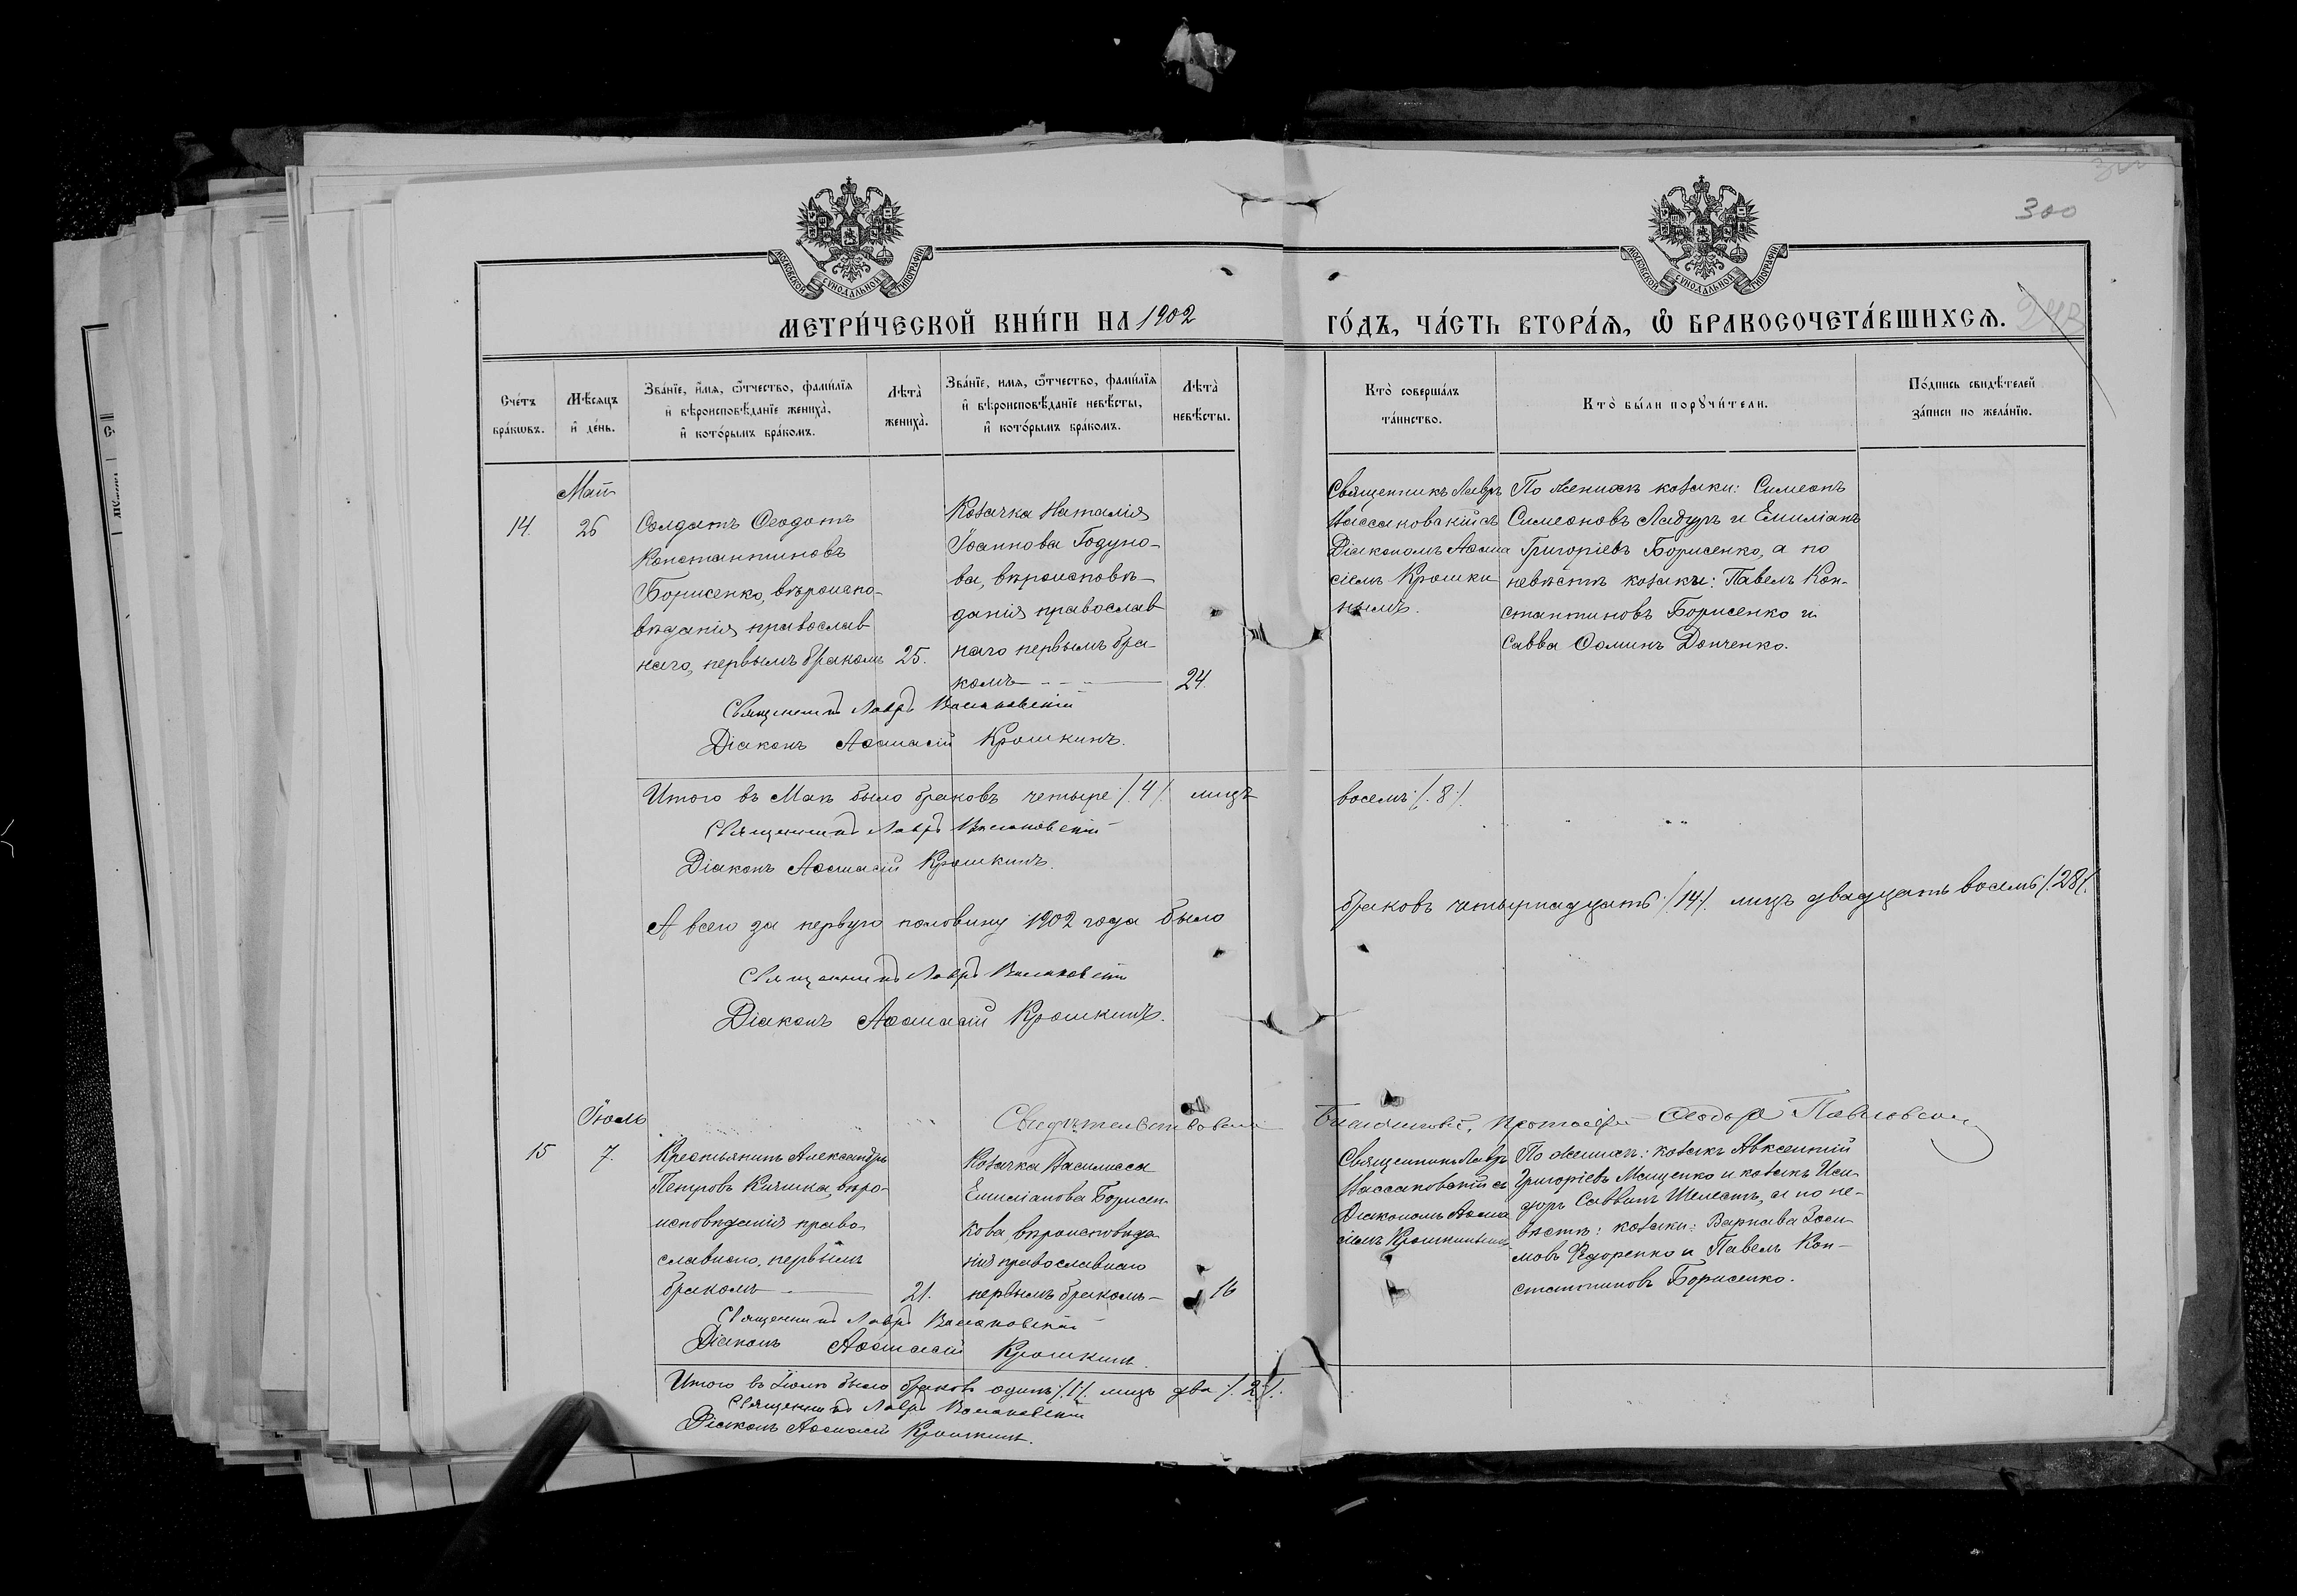 300
МОСКОВСКОЙ СѴНОДАЛЬНОЙ ТИПОГРАФІИ
МОСКОВСКОЙ СѴНОДАЛЬНОЙ ТИПОГРАФІИ
МЕТРИ́ЧЕСКОЙ КНИ́ГИ НА 1902
ГО́ДЪ, ЧА́СТЬ ВТОРА́Ѧ, Ѡ҆ БРАКОСОЧЕТА́ВШИХСѦ.
Сче́тъ бра́кѡвъ.
Мѣ́сѧцъ и҆ де́нь.
Зва́нїе, и҆́мѧ, ѻ҆́тчество, фами́лїѧ
и҆ вѣроисповѣ́данїе жениха̀,
и҆ кото́рымъ бра́комъ.
Лѣта̀ жениха̀.
Зва́нїе, имѧ, ѻ҆́тчество, фами́лїѧ
и҆ вѣроисповѣ́данїе невѣ́сты,
и҆ кото́рымъ бра́комъ.
Лѣта̀ невѣ́сты.
Кто̀ соверша́лъ та́инство.
Кто̀ бы́ли порꙋчи́тели.
По́дпись свидѣ́телей
за́писи по жела́нїю.
Май
14.
26
Солдатъ Ѳеодотъ
Константиновъ
Борисенко, вѣроиспо-
вѣданія православ
наго, первымъ бракомъ
25.
Козачка Наталія
Іоаннова Годуно-
ва, вѣроисповѣ-
данія православ
наго первымъ бра-
комъ
24.
Священникъ Лавръ
Вассаковскій съ
Діакономъ Аѳана
сіемъ Крошки
нымъ.
По женихѣ козаки: Симеонъ
Симеоновъ Ладуръ и Емиліанъ
Григоріевъ Борисенко, а по
невѣстѣ козаки: Павелъ Кон-
стантиновъ Борисенко и
Савва Ѳоминъ Донченко.
Священникъ Лавръ Вассаковскій
Діаконъ Аѳанасій Крошкинъ.
Итого въ Маѣ было браковъ четыре /.4/. лицъ
восемь /.8./.
Священникъ Лавръ Вассаковскій
Діаконъ Аѳанасій Крошкинъ.
А всего за первую половину 1902 года было
браковъ четырнадцать /.14/. лицъ двадцать восемь /.28/.
Священникъ Лавръ Вассаковскій
Діаконъ Аѳанасій Крошкинъ.
Свидѣтельствовалъ
Благочинный, Протоіерей Ѳеодоръ
Іюль
15
7.
Крестьянинъ Александръ
Петровъ Кичика, вѣро-
исповѣданія право
славнаго, первымъ
бракомъ
21.
Козачка Василисса
Емиліанова Борисен
кова, вѣроисповѣда
нія православнаго
первымъ бракомъ-
16
Священникъ Лавръ
Вассаковскій съ
Діакономъ Аѳана
сіемъ Крошкинымъ
По женихѣ: козакъ Авксентій
Григоріевъ Мащенко и козакъ Иси-
доръ Саввинъ Шелестъ, а по не-
вѣстѣ: козаки: Варнава Зоси-
мовъ Федоренко и Павелъ Кон-
стантиновъ Борисенко.
Священникъ Лавръ Вассаковскій
Діаконъ Аѳанасій Крошкинъ.
Итого въ Іюлѣ было браковъ одинъ /.1/. лицъ два /.2./.
Священникъ Лавръ Вассаковскій
Діаконъ Аѳанасій Крошкинъ.